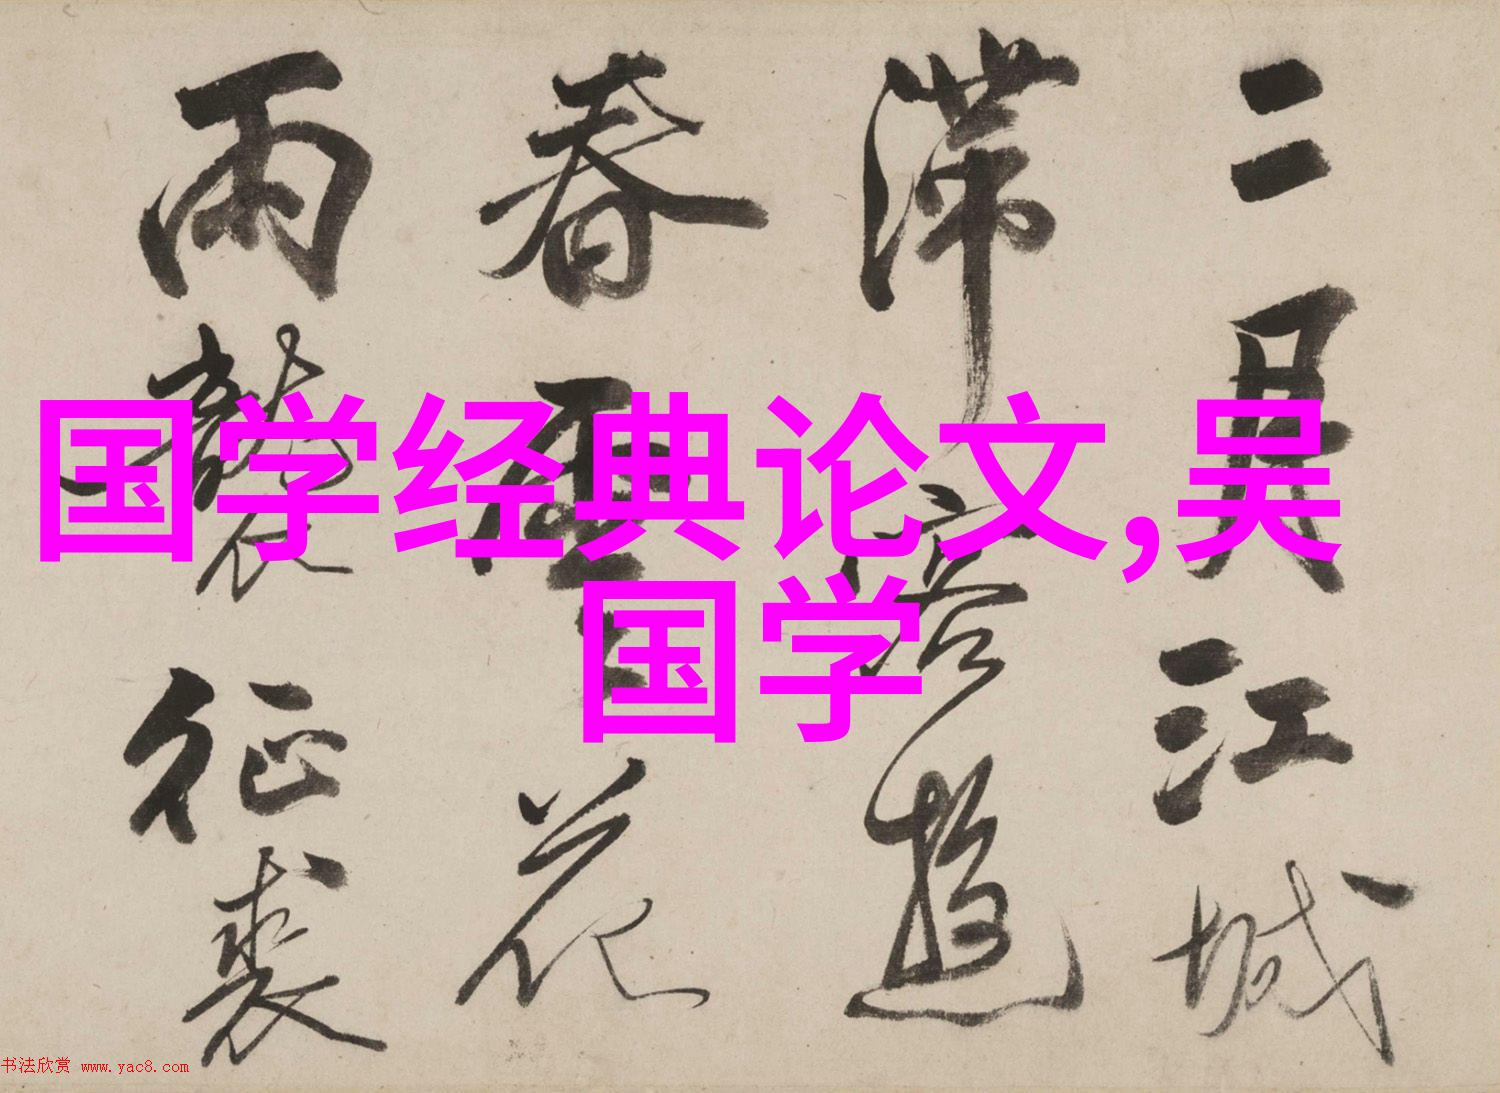 国学经典论文,吴
国学
二月江城
滞客游
春雪花
雨袭征裘
书法欣赏 www.yac8.com